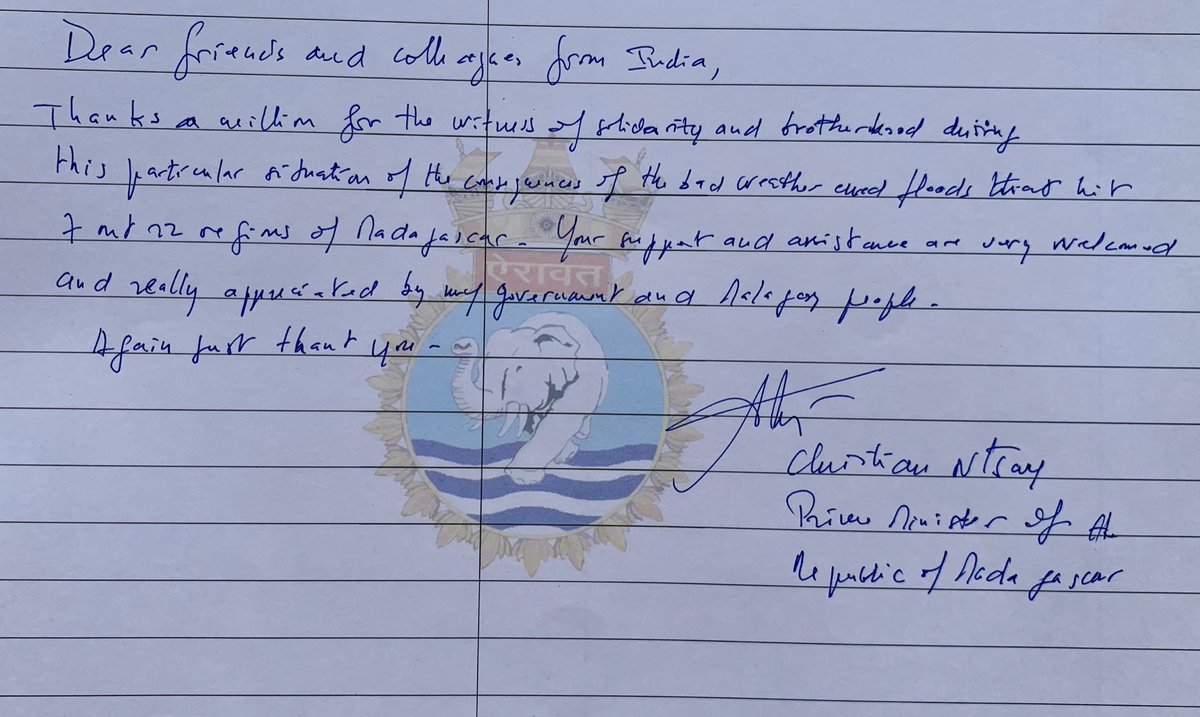 Dear friends and colleagues from India,
Thanks a million for the witness of solidarity and brotherhood during
this particular situation of the consequences of the bad weather and floods that hit
7 out 22 regions of Madagascar. Your support and assistance are very welcomed
ऐरावत
and really appreciated by my government and Malagasy people.
Again just thank you -
Christian Ntsay
Prime Minister of the
Republic of Madagascar